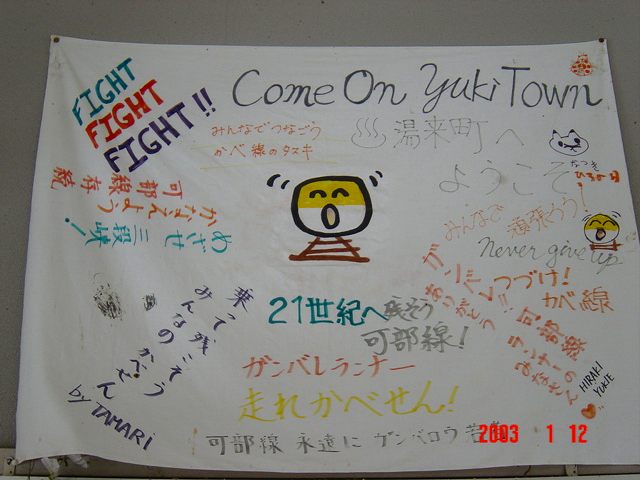 FIGHT
FIGHT
FIGHT!!
Come On Yuki Town
みんなでつなごう
かべ線のタスキ
湯来町へ
ようこそ
なつき
可部線存続
かなえよう
めざせ 三段峡!
みんなで
頑張ろう!
Never give up
ガンバレ!!
つづけ!
カベ線
ありがとう
可部線
ランナーの
みなさん
HIRAKI
YUKIE
乗って残こそう
みんなの かべせん
by TAMARI
21世紀へ残そう
可部線!
ガンバレランナー
走れかべせん!
可部線 永遠に ガンバロウ
2003 1 12